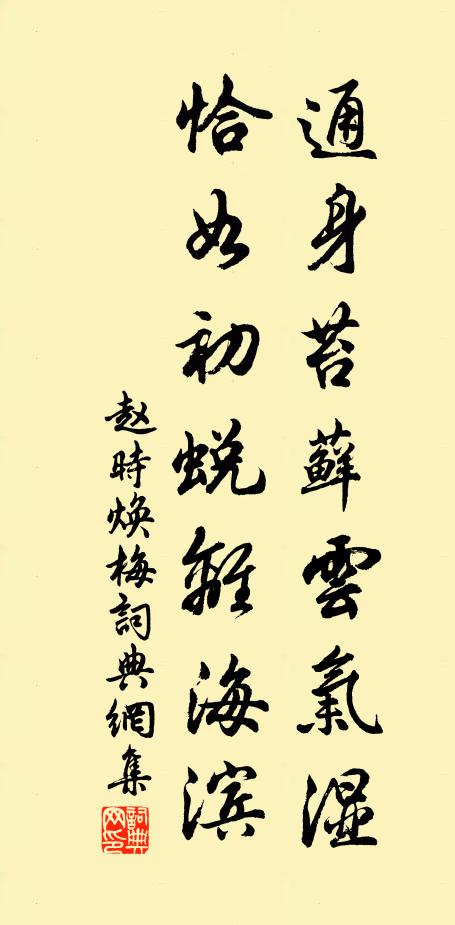 通身苔蘚雲氣濕
恰如初蜕離海滨
赵時焕梅詞典網集
詞典网印